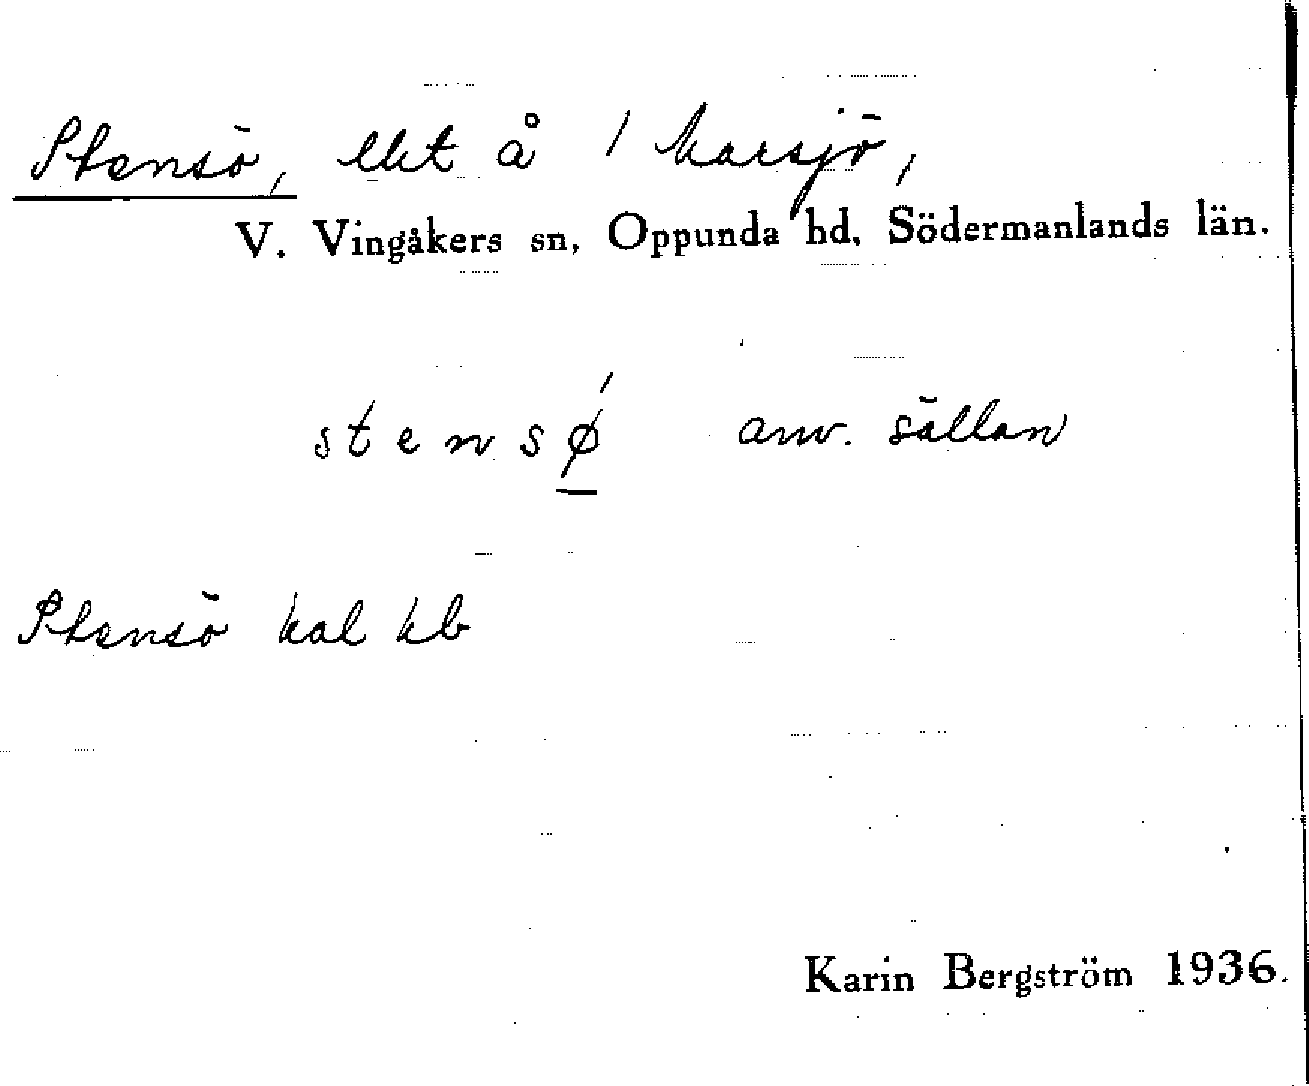 Stensö, lht å 1 Marsjö,
V. Vingåkers sn, Oppunda hd, Södermanlands län.
stensǿ anv. sällan
Stensö hal hb
Karin Bergström 1936.